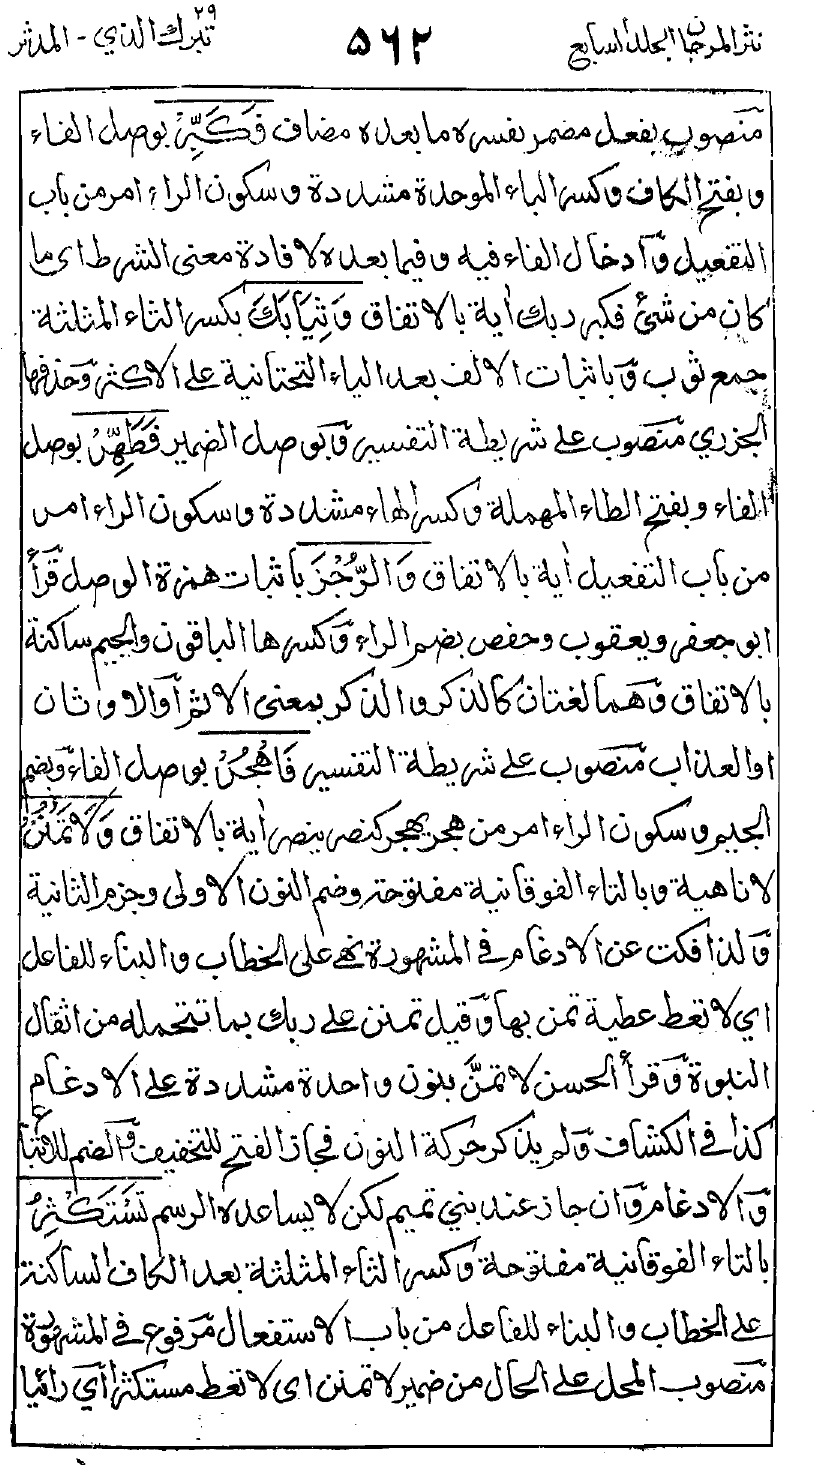 نثر المرجان الجلد السابع ٥٦٢ تبرك الذي ٢٩ - المدثر
منصوب بفعل مضمر يفسره ما بعده مضاف فَكَبِّرْ بوصل الفاء
وبفتح الكاف وكسر الباء الموحدة مشددة وسكون الراء امر من باب
التفعيل وادخال الفاء فيه وفيما بعده لافادة معنى الشرط اى ما
كان من شئ فكبر ربك اية بالاتفاق وَثِيَابَكَ بكسر الثاء المثلثة
جمع ثوب وباثبات الالف بعد الياء التحتانية على الاكثر وحذفها
الجزري منصوب على شريطة التفسير وبوصل الضمير فَطَهِّرْ بوصل
الفاء وبفتح الطاء المهملة وكسر الهاء مشددة وسكون الراء امر
من باب التفعيل اية بالاتفاق وَالرُّجْزَ باثبات همزة الوصل قرأ
ابو جعفر ويعقوب وحفص بضم الراء وكسرها الباقون والجيم ساكنة
بالاتفاق وهما لغتان كالذكر والذكر بمعنى الاثم او الاوثان
او العذاب منصوب على شريطة التفسير فَاهْجُرْ بوصل الفاء وبضم
الجيم وسكون الراء امر من هجر يهجر كنصر ينصر اية بالاتفاق وَلَا تَمْنُنْ
لا ناهية وبالتاء الفوقانية مفتوحة وضم النون الاولى وجزم الثانية
ولذا فكت عن الادغام في المشهورة نهي على الخطاب والبناء للفاعل
اي لا تعط عطية تمن بها وقيل تمنن على ربك بما تتحمله من اثقال
النبوة وقرأ الحسن لا تمنَّ بنون واحدة مشددة على الادغام
كذا في الكشاف ولم يذكر حركة النون فجاز الفتح للتخفيف والضم للاتباع
والادغام وان جاز عند بني تميم لكن لا يساعده الرسم تَسْتَكْثِرُ
بالتاء الفوقانية مفتوحة وكسر الثاء المثلثة بعد الكاف الساكنة
على الخطاب والبناء للفاعل من باب الاستفعال مرفوع في المشهورة
منصوب المحل على الحال من ضمير لا تمنن اى لا تعط مستكثرا أي رائيا